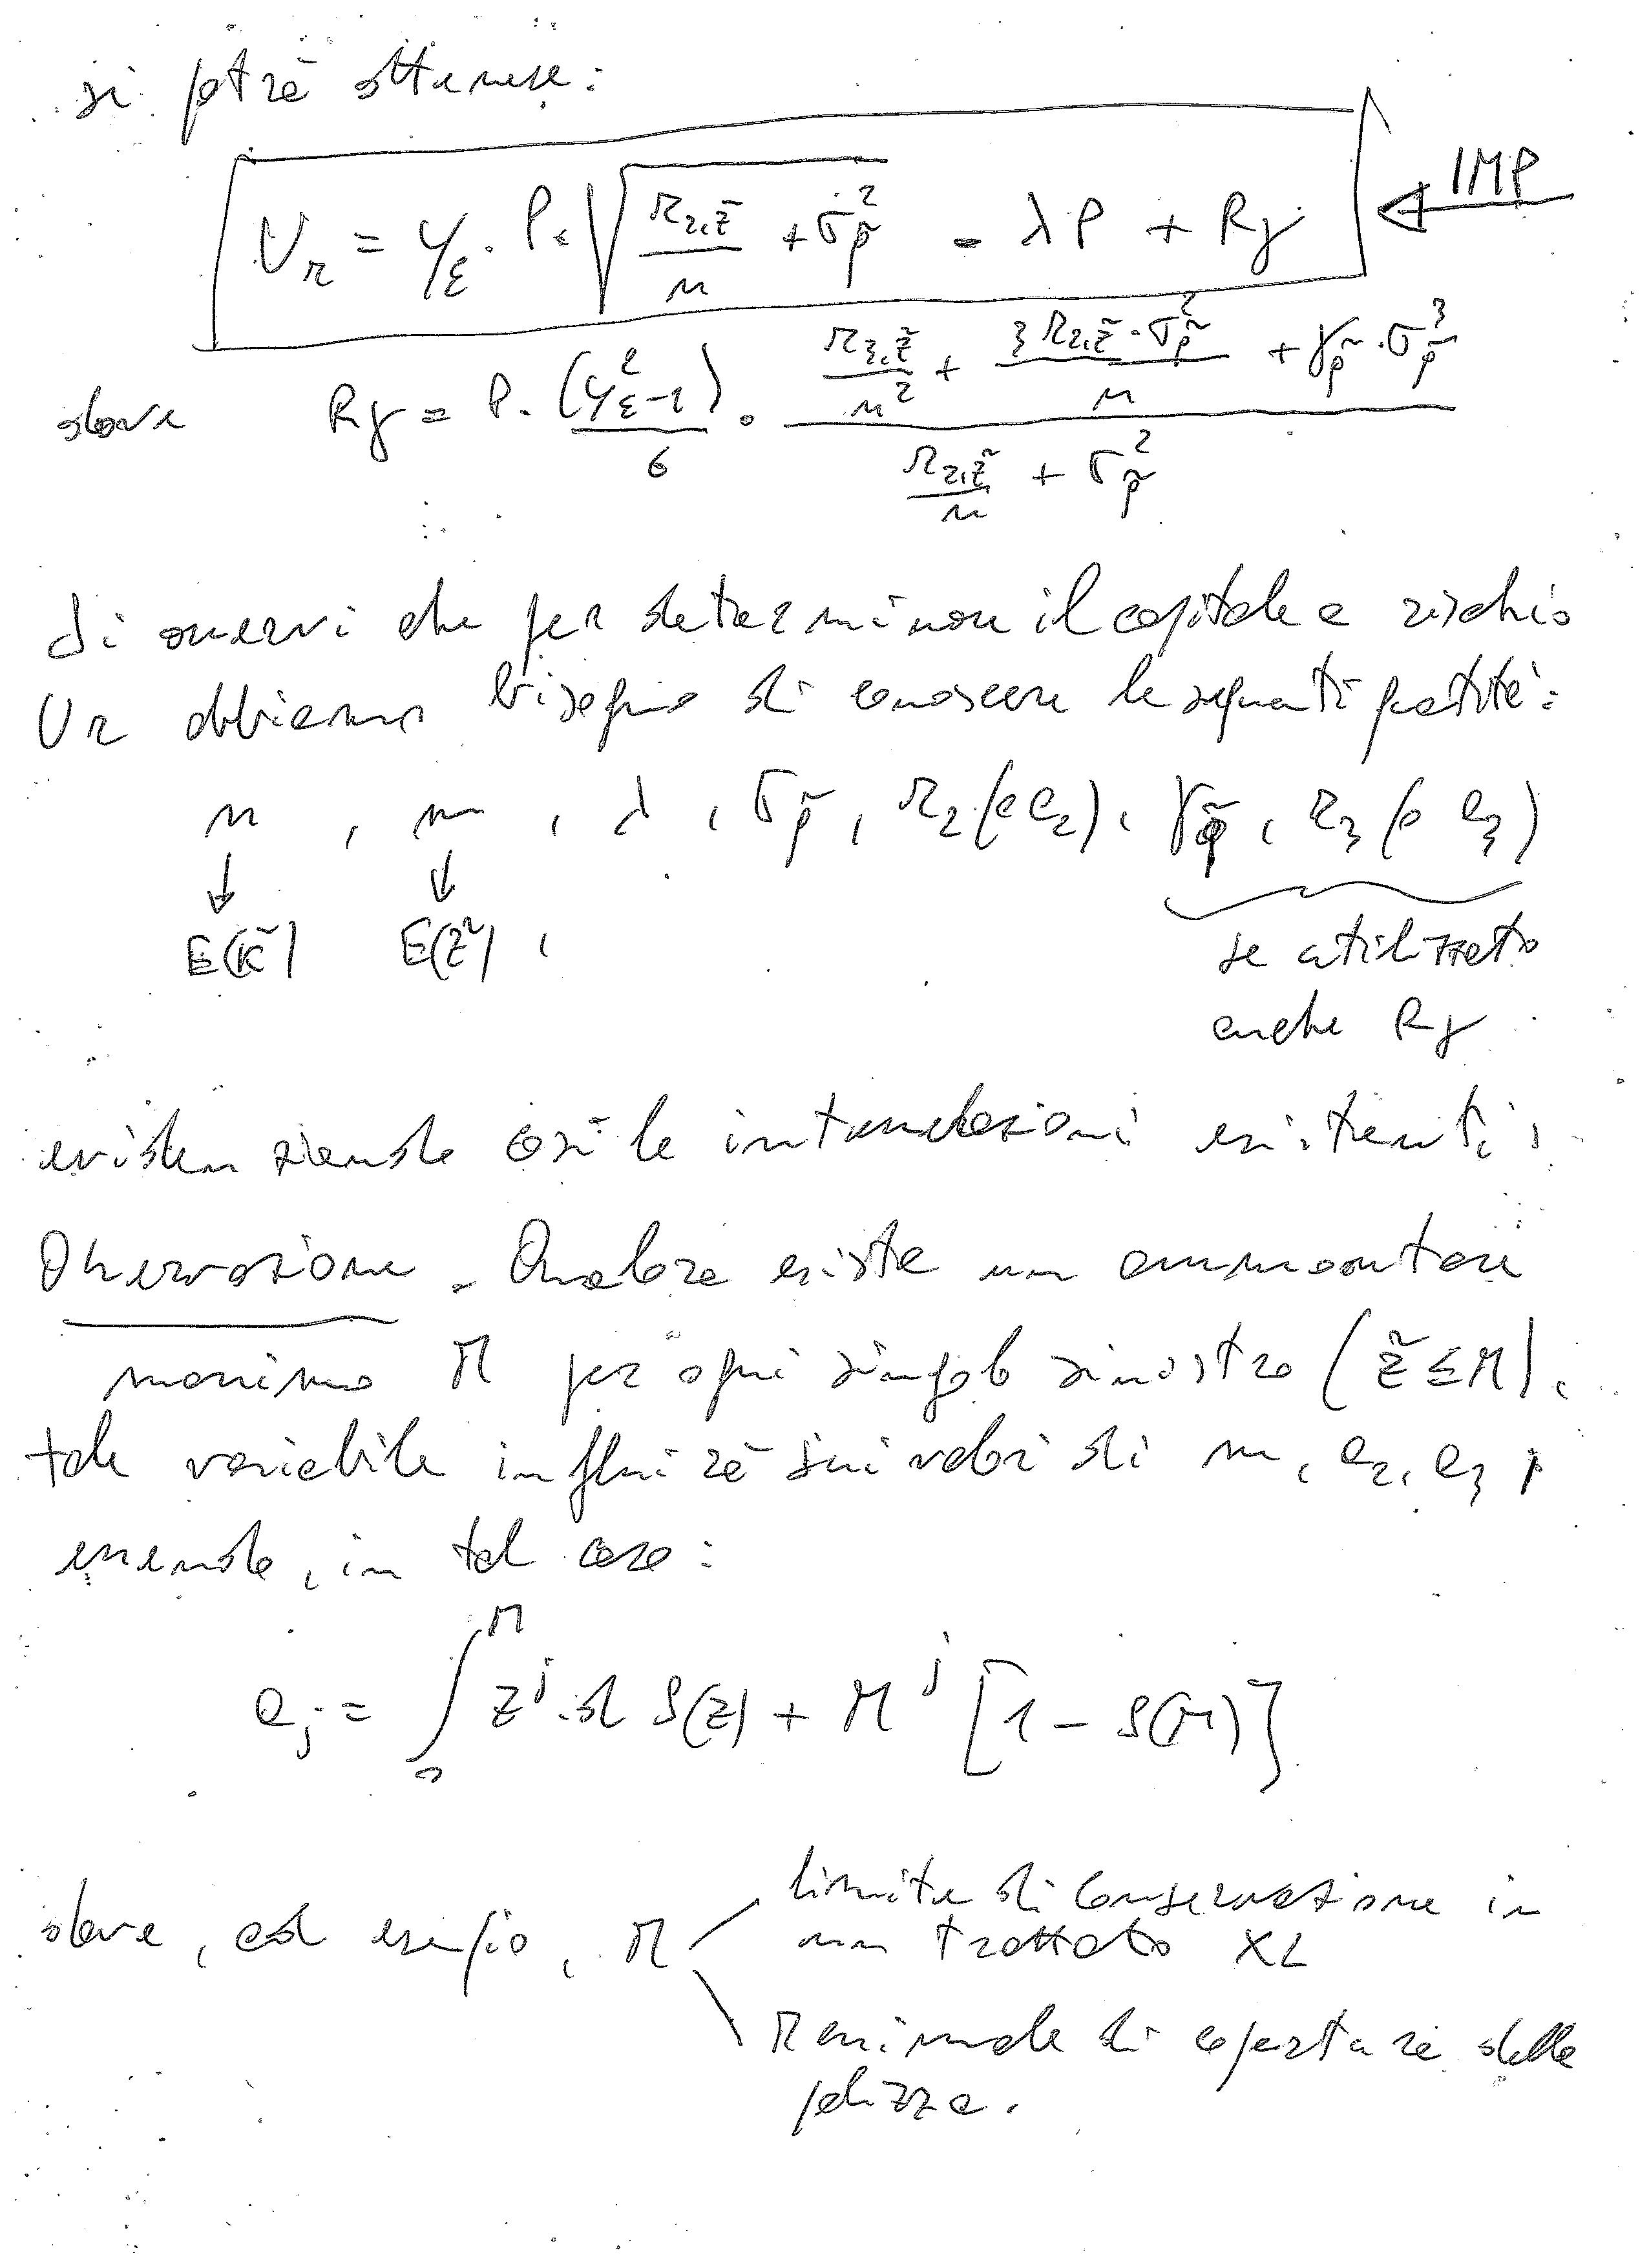 si potrà ottenere:
U_r = y_ε · P · √(r_{2,z̃}/n + σ²_p̃) - λP + R_γ ← IMP
dove R_γ = P · (y²_ε - 1)/6 · (r_{3,z̃}/n² + 3 r_{2,z̃} · σ²_p̃/n + γ_p̃ · σ³_p̃)/(r_{2,z̃}/n + σ²_p̃)
Si osservi che per determinare il capitale a rischio
U_r abbiamo bisogno di conoscere le seguenti quantità:
n, m, λ, σ_p̃, r_2 (e a_2), γ_p̃, r_3 (e a_3)
↓ ↓
E(k̃) E(z̃),
se utilizzato
anche R_γ
evidenziando così le interrelazioni esistenti:
Osservazione. Qualora esiste un ammontare
massimo M per ogni singolo sinistro (z̃ ≤ M),
tale variabile influirà sui valori di m, a_2, a_3,
essendo, in tal caso:
a_j = ∫_0^M z^j · d S(z) + M^j [1 - S(M)]
dove, ad esempio, M
limite di conservazione in
un trattato XL
Massimale di copertura della
polizza.